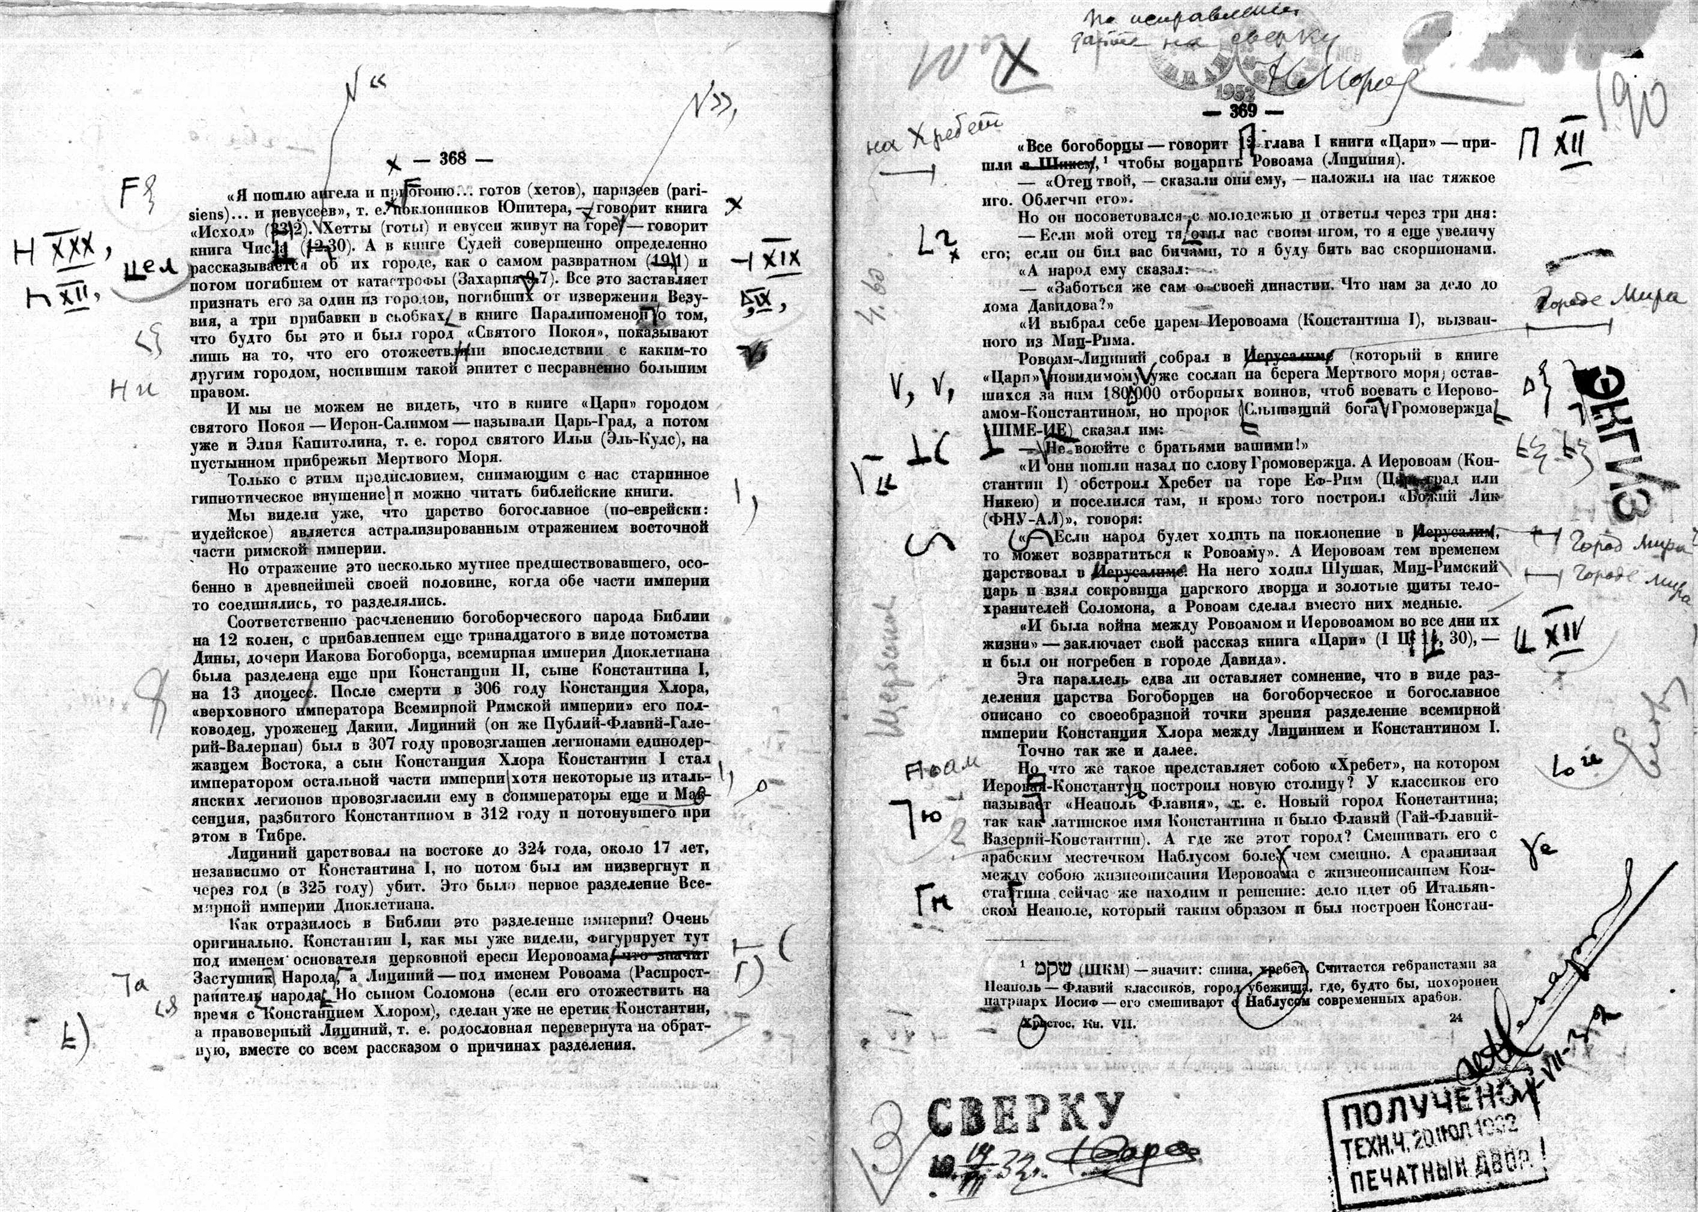 — 368 —
«Я пошлю ангела и прогоню... готов (хетов), паризеев (pari-
siens)... и иевусеев», т. е. поклонников Юпитера, — говорит книга
«Исход» Хетты (готы) и евусеи живут на горе — говорит
книга Числ (12.30). А в книге Судей совершенно определенно
рассказывается об их городе, как о самом развратном (19.1) и
потом погибшем от катастрофы (Захария 9.7). Все это заставляет
признать его за один из городов, погибших от извержения Везу-
вия, а три прибавки в скобках в книге Паралипоменон о том,
что будто бы это и был город «Святого Покоя», показывают
лишь на то, что его отожествляли впоследствии с каким-то
другим городом, носившим такой эпитет с несравненно большим
правом.
И мы не можем не видеть, что в книге «Цари» городом
святого Покоя — Иерон-Салимом — называли Царь-Град, а потом
уже и Элия Капитолина, т. е. город святого Ильи (Эль-Кудс), на
пустынном прибрежьи Мертвого Моря.
Только с этим предисловием, снимающим с нас старинное
гипнотическое внушение и можно читать библейские книги.
Мы видели уже, что царство богославное (по-еврейски:
иудейское) является астрализированным отражением восточной
части римской империи.
Но отражение это несколько мутнее предшествовавшего, осо-
бенно в древнейшей своей половине, когда обе части империи
то соединялись, то разделялись.
Соответственно расчленению богоборческого народа Библии
на 12 колен, с прибавлением еще тринадцатого в виде потомства
Дины, дочери Иакова Богоборца, всемирная империя Диоклетиана
была разделена еще при Констанции II, сыне Константина I,
на 13 диоцесс. После смерти в 306 году Констанция Хлора,
«верховного императора Всемирной Римской империи» его пол-
ководец, уроженец Дакии, Лициний (он же Публий-Флавий-Гале-
рий-Валериан) был в 307 году провозглашен легионами единодер-
жавцем Востока, а сын Констанция Хлора Константин I стал
императором остальной части империи хотя некоторые из италь-
янских легионов провозгласили ему в соимператоры еще и Мак-
сенция, разбитого Константином в 312 году и потонувшего при
этом в Тибре.
Лициний царствовал на востоке до 324 года, около 17 лет,
независимо от Константина I, но потом был им низвергнут и
через год (в 325 году) убит. Это было первое разделение Все-
мирной империи Диоклетиана.
Как отразилось в Библии это разделение империи? Очень
оригинально. Константин I, как мы уже видели, фигурирует тут
под именем основателя церковной ереси Иеровоама, что значит
Заступник Народа, а Лициний — под именем Ровоама (Распрост-
ранитель народа. Но сыном Соломона (если его отожествить на
время с Констанцием Хлором), сделан уже не еретик Константин,
а правоверный Лициний, т. е. родословная перевернута на обрат-
ную, вместе со всем рассказом о причинах разделения.
F
Н XXX,
цел
XII,
Н и
XIX
IX,
По исправлении
дайте на сверку
Н Мороз
1932
190
— 369 —
на Хребет
П XII
«Все богоборцы — говорит 12 глава I книги «Цари» — при-
шли в Шикем,¹ чтобы воцарить Ровоама (Лициния).
— «Отец твой, — сказали они ему, — наложил на нас тяжкое
иго. Облегчи его».
Но он посоветовался с молодежью и ответил через три дня:
— Если мой отец тяготил вас своим игом, то я еще увеличу
его; если он бил вас бичами, то я буду бить вас скорпионами.
«А народ ему сказал:
— «Заботься же сам о своей династии. Что нам за дело до
дома Давидова?»
«И выбрал себе царем Иеровоама (Константина I), вызван-
ного из Миц-Рима.
Ровоам-Лициний собрал в Иерусалиме (который в книге
«Цари» повидимому уже сослан на берега Мертвого моря, остав-
шихся за ним 180000 отборных воинов, чтоб воевать с Иерово-
амом-Константином, но пророк Слышащий бога Громовержца
(ШМЕ-ИЕ) сказал им:
— Не воюйте с братьями вашими!»
«И они пошли назад по слову Громовержца. А Иеровоам (Кон-
стантин I) обстроил Хребет на горе Еф-Рим (Царьград или
Никею) и поселился там, и кроме того построил «Божий Лик
(ФНУ-АЛ)», говоря:
«Если народ будет ходить на поклонение в Иерусалим,
то может возвратиться к Ровоаму». А Иеровоам тем временем
царствовал в Иерусалиме. На него ходил Шушак, Миц-Римский
царь и взял сокровища царского дворца и золотые щиты тело-
хранителей Соломона, а Ровоам сделал вместо них медные.
«И была война между Ровоамом и Иеровоамом во все дни их
жизни» — заключает свой рассказ книга «Цари» (I Ц 14, 30), —
и был он погребен в городе Давида».
Эта параллель едва ли оставляет сомнение, что в виде раз-
деления царства Богоборцев на богоборческое и богославное
описано со своеобразной точки зрения разделение всемирной
империи Констанция Хлора между Лицинием и Константином I.
Точно так же и далее.
Но что же такое представляет собою «Хребет», на котором
Иеровоам-Константин построил новую столицу? У классиков его
называет «Неаполь Флавия», т. е. Новый город Константина;
так как латинское имя Константина и было Флавий (Гай-Флавий-
Валерий-Константин). А где же этот город? Смешивать его с
арабским местечком Наблусом более чем смешно. А сравнивая
между собою жизнеописания Иеровоама с жизнеописанием Кон-
стантина сейчас же находим и решение: дело идет об Итальян-
ском Неаполе, который таким образом и был построен Констан-
¹ שקמ (ШКМ) — значит: спина, хребет. Считается гебраистами за
Неаполь — Флавий классиков, город убежища, где, будто бы, похоронен
патриарх Иосиф — его смешивают с Наблусом современных арабов.
Христос, Кн. VII.
24
Городе Мира
ЭКГИЗ
Город Мира
Городе мира
XIV
СВЕРКУ
ПОЛУЧЕНО
ТЕХН.Ч. 20 ИЮЛ 1932
ПЕЧАТНЫЙ ДВОР